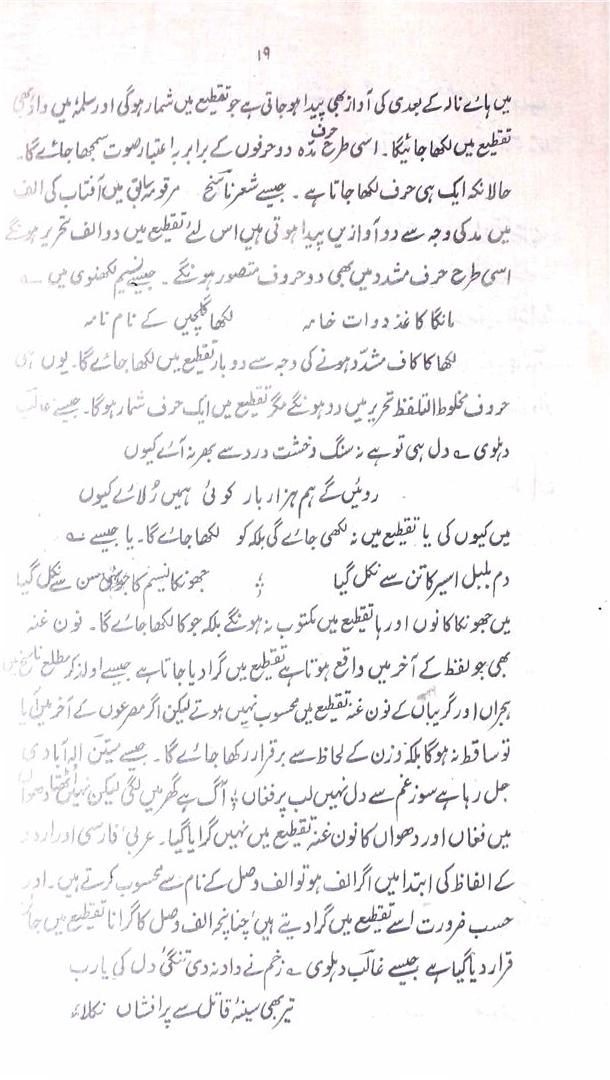 ۱۹
میں ہائے نالہ کے بعدی کی آواز بھی پیدا ہو جاتی ہے جو تقطیع میں شمار ہوگی اور سلمہٗ میں واؤ بھی
تقطیع میں لکھا جائیگا۔ اسی طرح حرف مدہ دو حرفوں کے برابر بہ اعتبار صوت سمجھا جائے گا۔
حالانکہ ایک ہی حرف لکھا جاتا ہے ۔ جیسے شعر ناسخ مرقومہ سابق میں آفتاب کی الف
میں مد کی وجہ سے دو آوازیں پیدا ہوتی ہیں اس لئے تقطیع میں دو الف تحریر ہونگے
اسی طرح حرف مشدد میں بھی دو حروف متصور ہونگے ۔ جیسے نسیم لکھنوی میں ؎
مانگا کاغذ دوات خامہ لکھا گلچیں کے نام نامہ
لکھا کا کاف مشدّد ہونے کی وجہ سے دو بار تقطیع میں لکھا جائے گا۔ یوں ہی
حروف مخلوط التلفظ تحریر میں دو ہونگے مگر تقطیع میں ایک حرف شمار ہوگا۔ جیسے غالب
دہلوی ؎ دل ہی تو ہے نہ سنگ و خشت درد سے بھر نہ آئے کیوں
روئیں گے ہم ہزار بار کوئی ہمیں رُلائے کیوں
میں کیوں کی یا تقطیع میں نہ لکھی جائے گی بلکہ کو لکھا جائے گا۔ یا جیسے ؎
دم بلبل اسیر کا تن سے نکل گیا ؛ جھونکا نسیم کا جونہی سن سے نکل گیا
میں جھونکا کا نوں اور ہا تقطیع میں مکتوب نہ ہونگے بلکہ جوکا لکھا جائے گا۔ نون غنہ
بھی جو لفظ کے آخر میں واقع ہوتا ہے تقطیع میں گرا دیا جاتا ہے جیسے اولذکر مطلع ناسخ میں
ہجراں اور گریباں کے نون غنہ تقطیع میں محسوب نہیں ہوتے لیکن اگر مصرعوں کے آخر میں آیا
تو ساقط نہ ہوگا بلکہ وزن کے لحاظ سے برقرار رکھا جائے گا ۔ جیسے الہ آبادی
جل رہا ہے سوز غم سے دل نہیں لب پر فغاں ؛ آگ ہے گھر میں لگی لیکن نہیں اُٹھتا دھواں
میں فغاں اور دھواں کا نون غنہ تقطیع میں نہیں گرایا گیا۔ عربی فارسی اور اردو
کے الفاظ کی ابتدا میں اگر الف ہو تو الف وصل کے نام سے محسوب کرتے ہیں ۔ اور
حسب ضرورت اسے تقطیع میں گرا دیتے ہیں چنانچہ الف وصل کا گرانا تقطیع میں جائز
قرار دیا گیا ہے جیسے غالب دہلوی ؎ زخم نے داد نہ دی تنگیٔ دل کی یارب
تیر بھی سینۂ قاتل سے پر افشاں نکلا